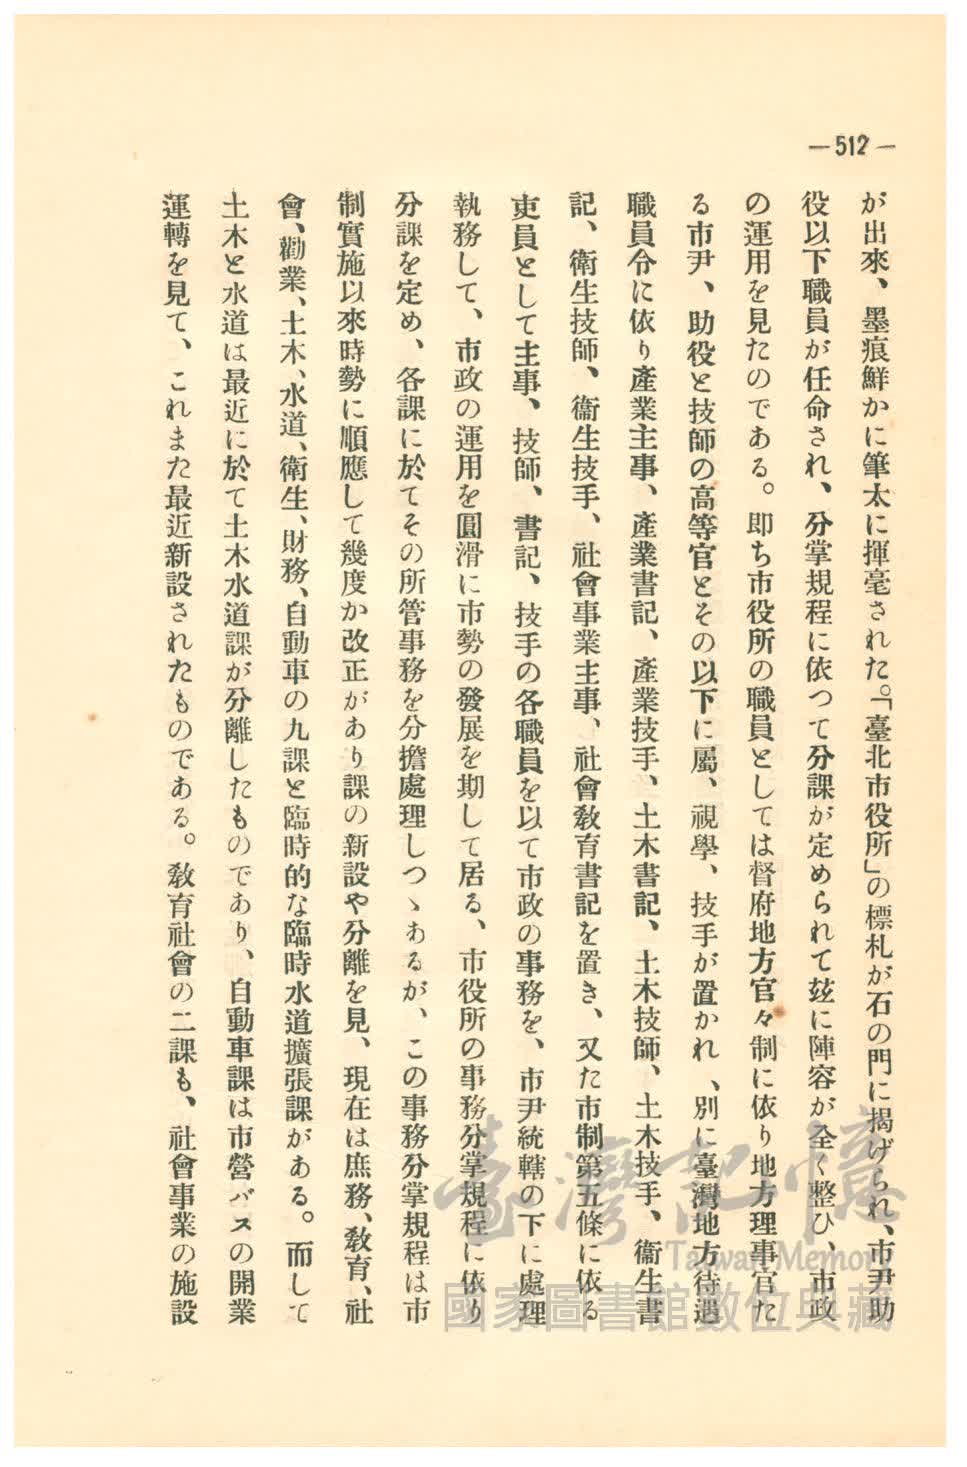 —512—
が出來、墨痕鮮かに筆太に揮毫された。「臺北市役所」の標札が石の門に揭げられ、市尹助
役以下職員が任命され、分掌規程に依つて分課が定められて玆に陣容が全く整ひ、市政
の運用を見たのである。即ち市役所の職員としては督府地方官々制に依り地方理事官た
る市尹、助役と技師の高等官とその以下に屬、視學、技手が置かれ、別に臺灣地方待遇
職員令に依り產業主事、產業書記、產業技手、土木書記、土木技師、土木技手、衞生書
記、衛生技師、衞生技手、社會事業主事、社會敎育書記を置き、又た市制第五條に依る
吏員として主事、技師、書記、技手の各職員を以て市政の事務を、市尹統轄の下に處理
執務して、市政の運用を圓滑に市勢の發展を期して居る、市役所の事務分掌規程に依り
分課を定め、各課に於てその所管事務を分擔處理しつゝあるが、この事務分掌規程は市
制實施以來時勢に順應して幾度か改正があり課の新設や分離を見、現在は庶務、敎育、社
會、勸業、土木、水道、衛生、財務、自動車の九課と臨時的な臨時水道擴張課がある。而して
土木と水道は最近に於て土木水道課が分離したものであり、自動車課は市營バスの開業
運轉を見て、これまた最近新設されたものである。敎育社會の二課も、社會事業の施設
臺灣記憶
Taiwan Memory
國家圖書館數位典藏